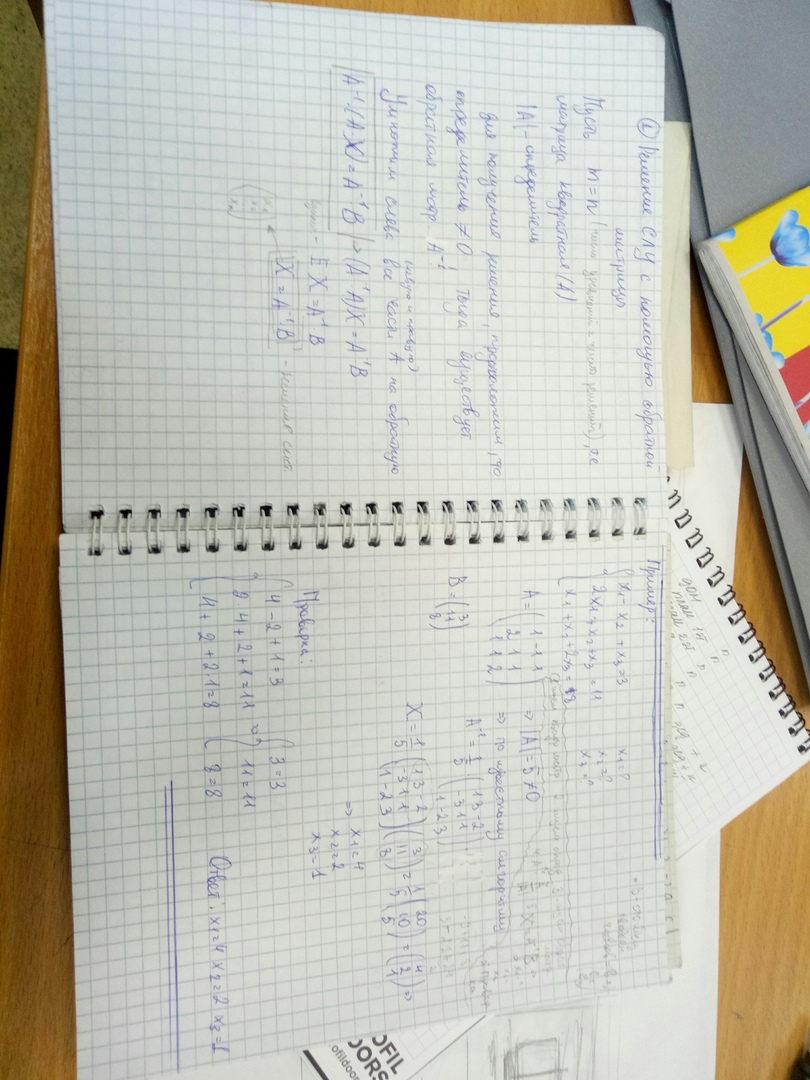 ① Решение СЛУ с помощью обратной
матрицы
Пусть m = n (число уравнений = число решений), т.е
матрица квадратная (А)
|A| - определитель
Для получения решения, предположим, что
определитель ≠ 0, тогда существует
обратная матр. A⁻¹
(слева и справа)
Умножим слева все части А на обратную
A⁻¹(A·X) = A⁻¹B => (A⁻¹A)X = A⁻¹B
E X = A⁻¹B
X = A⁻¹B - решение сист.
(x₁ x₂ xₙ)
Пример:
{ x₁ - x₂ + x₃ = 3
2x₁ + x₂ + x₃ = 11
x₁ + x₂ + 2x₃ = 8
x₁ = ?
x₂ = ?
x₃ = ?
A = (1 -1 1
2 1 1
1 1 2) => |A| = 5 ≠ 0
=> по известному алгоритму
B = (3
11
8)
A⁻¹ = 1/5 (1 3 -2
-3 1 1
1 -2 3)
X = 1/5 (1 3 -2
-3 1 1
1 -2 3) (3
11
8) = 1/5 (20
10
5) = (4
2
1) =>
=> x₁ = 4
x₂ = 2
x₃ = 1
Проверка:
{ 4 - 2 + 1 = 3
2·4 + 2 + 1 = 11
4 + 2 + 2·1 = 8
{ 3 = 3
11 = 11
8 = 8
Ответ: x₁ = 4 x₂ = 2 x₃ = 1